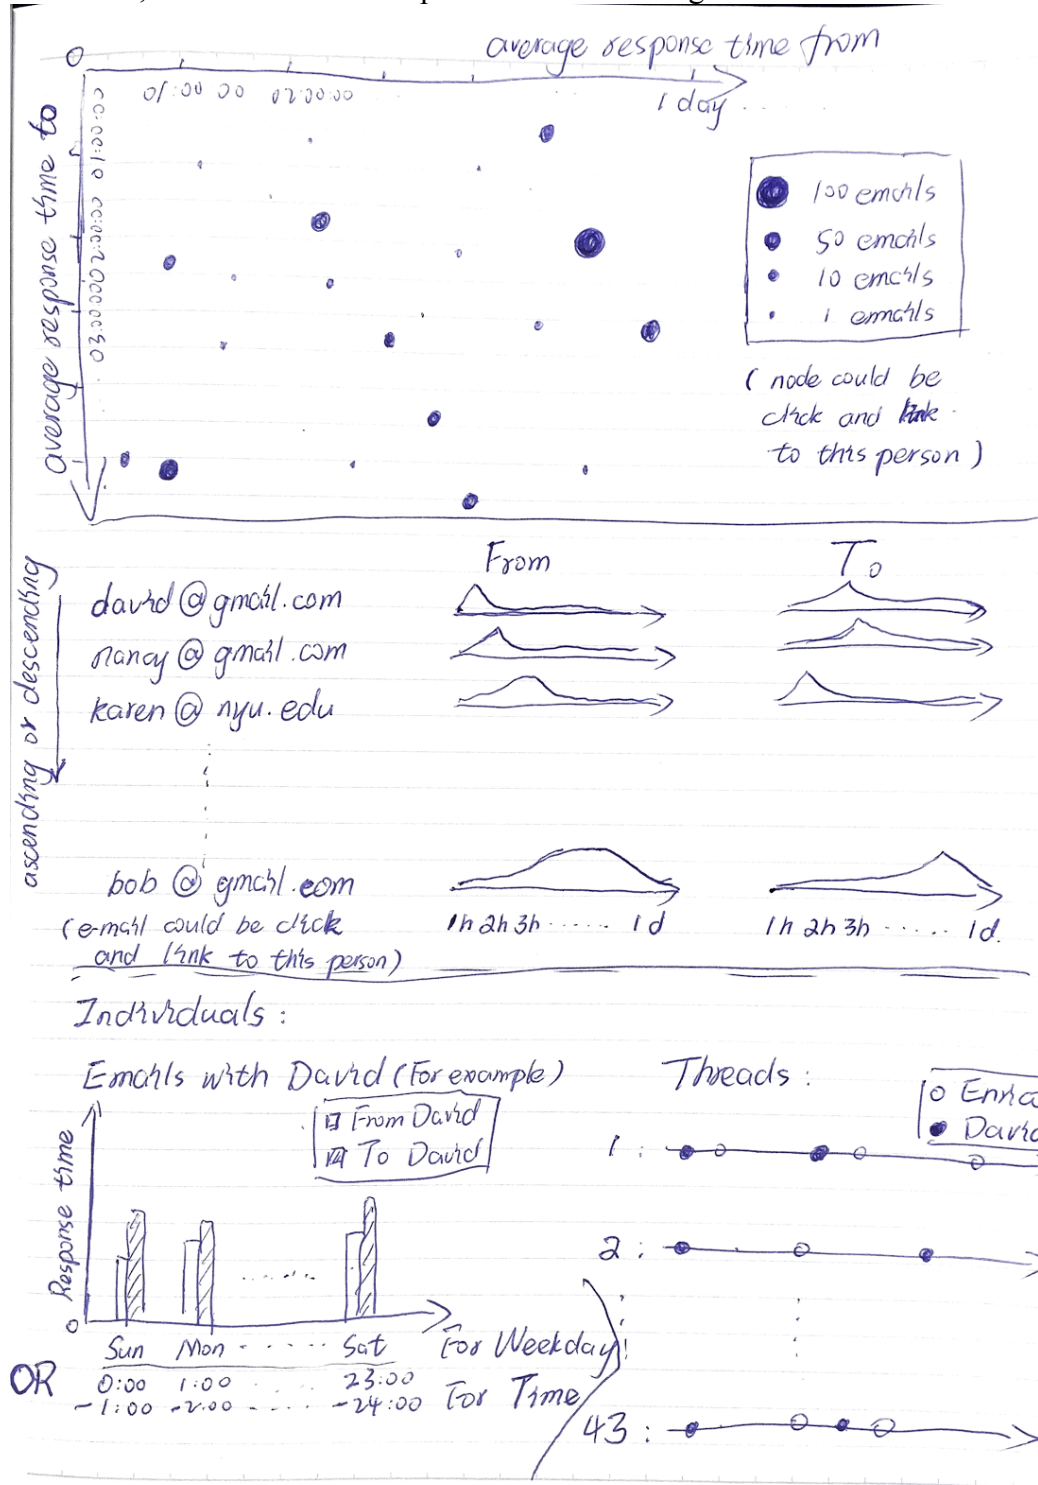 average response time from
0
00:00:10
00:00:20
1 day
average response time to
00:00:10
00:00:20
00:00:30
100 emails
50 emails
10 emails
1 emails
( node could be
click and link
to this person )
From
To
ascending or descending
david@gmail.com
nancy@gmail.com
karen@nyu.edu
bob@gmail.com
(e-mail could be click
and link to this person)
1h 2h 3h ...... 1d
1h 2h 3h ...... 1d.
Individuals:
Emails with David (For example)
From David
To David
Response time
0
Sun Mon - ..... Sat
For Weekday
OR
0:00 1:00 .... 23:00
-1:00 -2:00 ..... -24:00
For Time
Threads:
1:
2:
43: